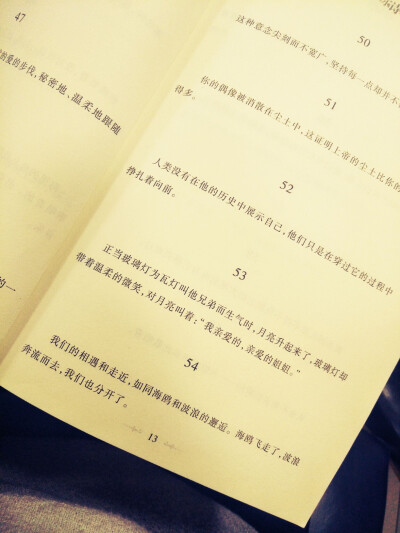 47
的爱的步伐，秘密地、温柔地跟随
的一
50
这种意念尖刻而不宽广，坚持每一点却并不
51
你的偶像被消散在尘土中，这证明上帝的尘土比你的
得多。
52
人类没有在他的历史中展示自己，他们只是在穿过它的过程中
挣扎着向前。
53
正当玻璃灯为瓦灯叫他兄弟而生气时，月亮升起来了，玻璃灯却
带着温柔的微笑，对月亮叫着：“我亲爱的，亲爱的姐姐。”
54
我们的相遇和走近，如同海鸥和波浪的邂逅。海鸥飞走了，波浪
奔流而去，我们也分开了。
13